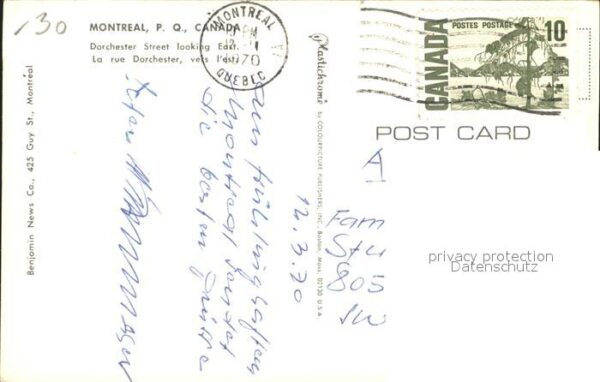 130
MONTREAL, P. Q., CANADA
Dorchester Street looking East.
La rue Dorchester, vers l'est.
MONTREAL
PM
70
QUEBEC
POSTES POSTAGE
CANADA
10
POST CARD
Plastichrome by COLOURPICTURE PUBLISHERS, INC., Boston, Mass. 02130 U.S.A.
Benjamin News Co., 425 Guy St., Montréal
12.3.70
Aus
Montreal sendet
die besten Grüsse
A
Fam
Stu
805
privacy protection
Datenschutz